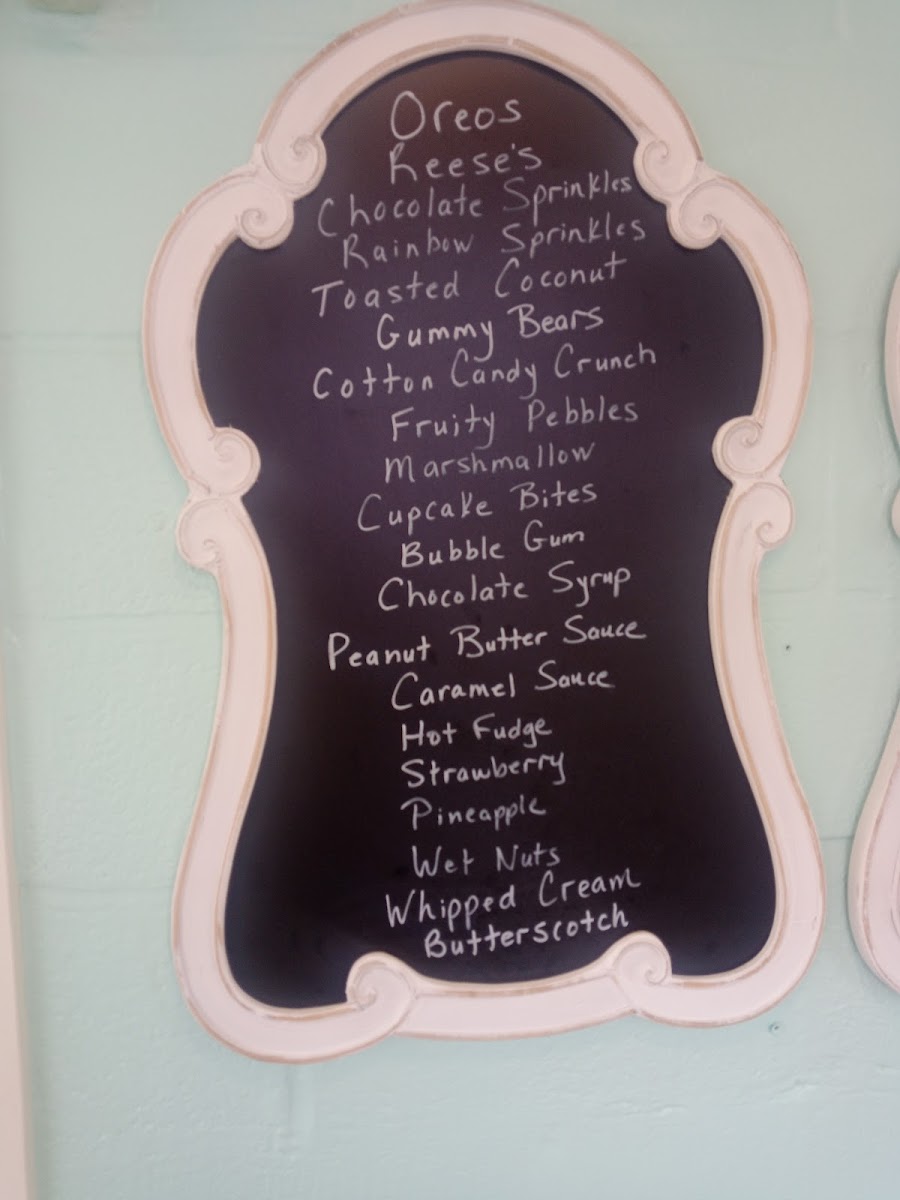 Oreos
Reese's
Chocolate Sprinkles
Rainbow Sprinkles
Toasted Coconut
Gummy Bears
Cotton Candy Crunch
Fruity Pebbles
Marshmallow
Cupcake Bites
Bubble Gum
Chocolate Syrup
Peanut Butter Sauce
Caramel Sauce
Hot Fudge
Strawberry
Pineapple
Wet Nuts
Whipped Cream
Butterscotch